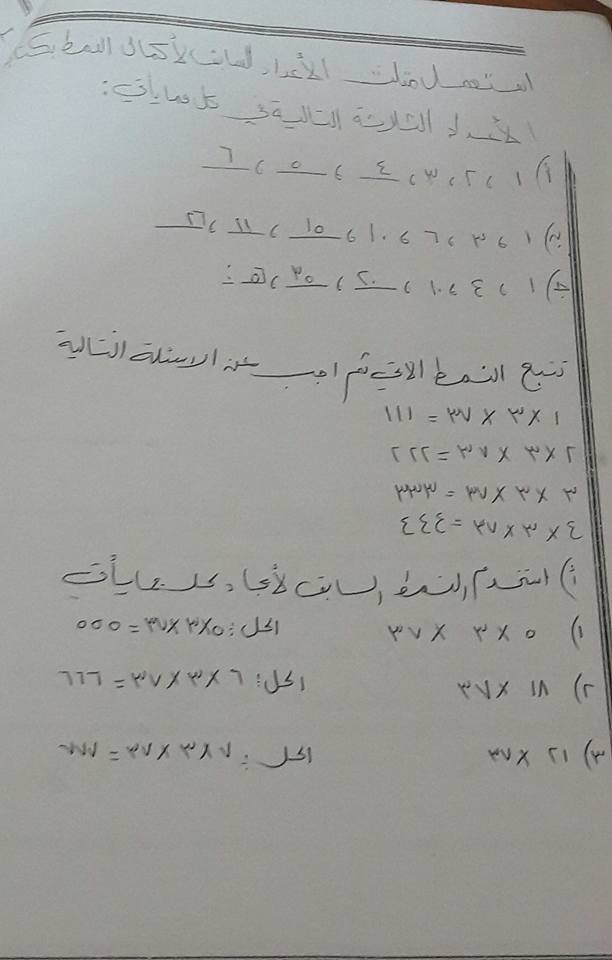 استعمل مثلث الأعداد السابق لأكمال النمط بكتابة
الأعداد الثلاثة التالية في كل مما يأتي:
أ) ١ ، ٢ ، ٣ ، ٤ ، ٥ ، ٦
ب) ١ ، ٣ ، ٦ ، ١٠ ، ١٥ ، ٢١ ، ٢٦
ج) ١ ، ٤ ، ١٠ ، ٢٠ ، ٣٥ ،
تتبع النمط الاتي ثم اجب عن الاسئلة التالية
١ × ٣ × ٣٧ = ١١١
٢ × ٣ × ٣٧ = ٢٢٢
٣ × ٣ × ٣٧ = ٣٣٣
٤ × ٣ × ٣٧ = ٤٤٤
أ) استخدم النمط السابق لأيجاد كل مما يأتي
١) ٥ × ٣ × ٣٧ الحل: ٥×٣×٣٧ = ٥٥٥
٢) ١٨ × ٣٧ الحل: ٦ × ٣ × ٣٧ = ٦٦٦
٣) ٢١ × ٣٧ الحل: ٧ × ٣ × ٣٧ = ٧٧٧